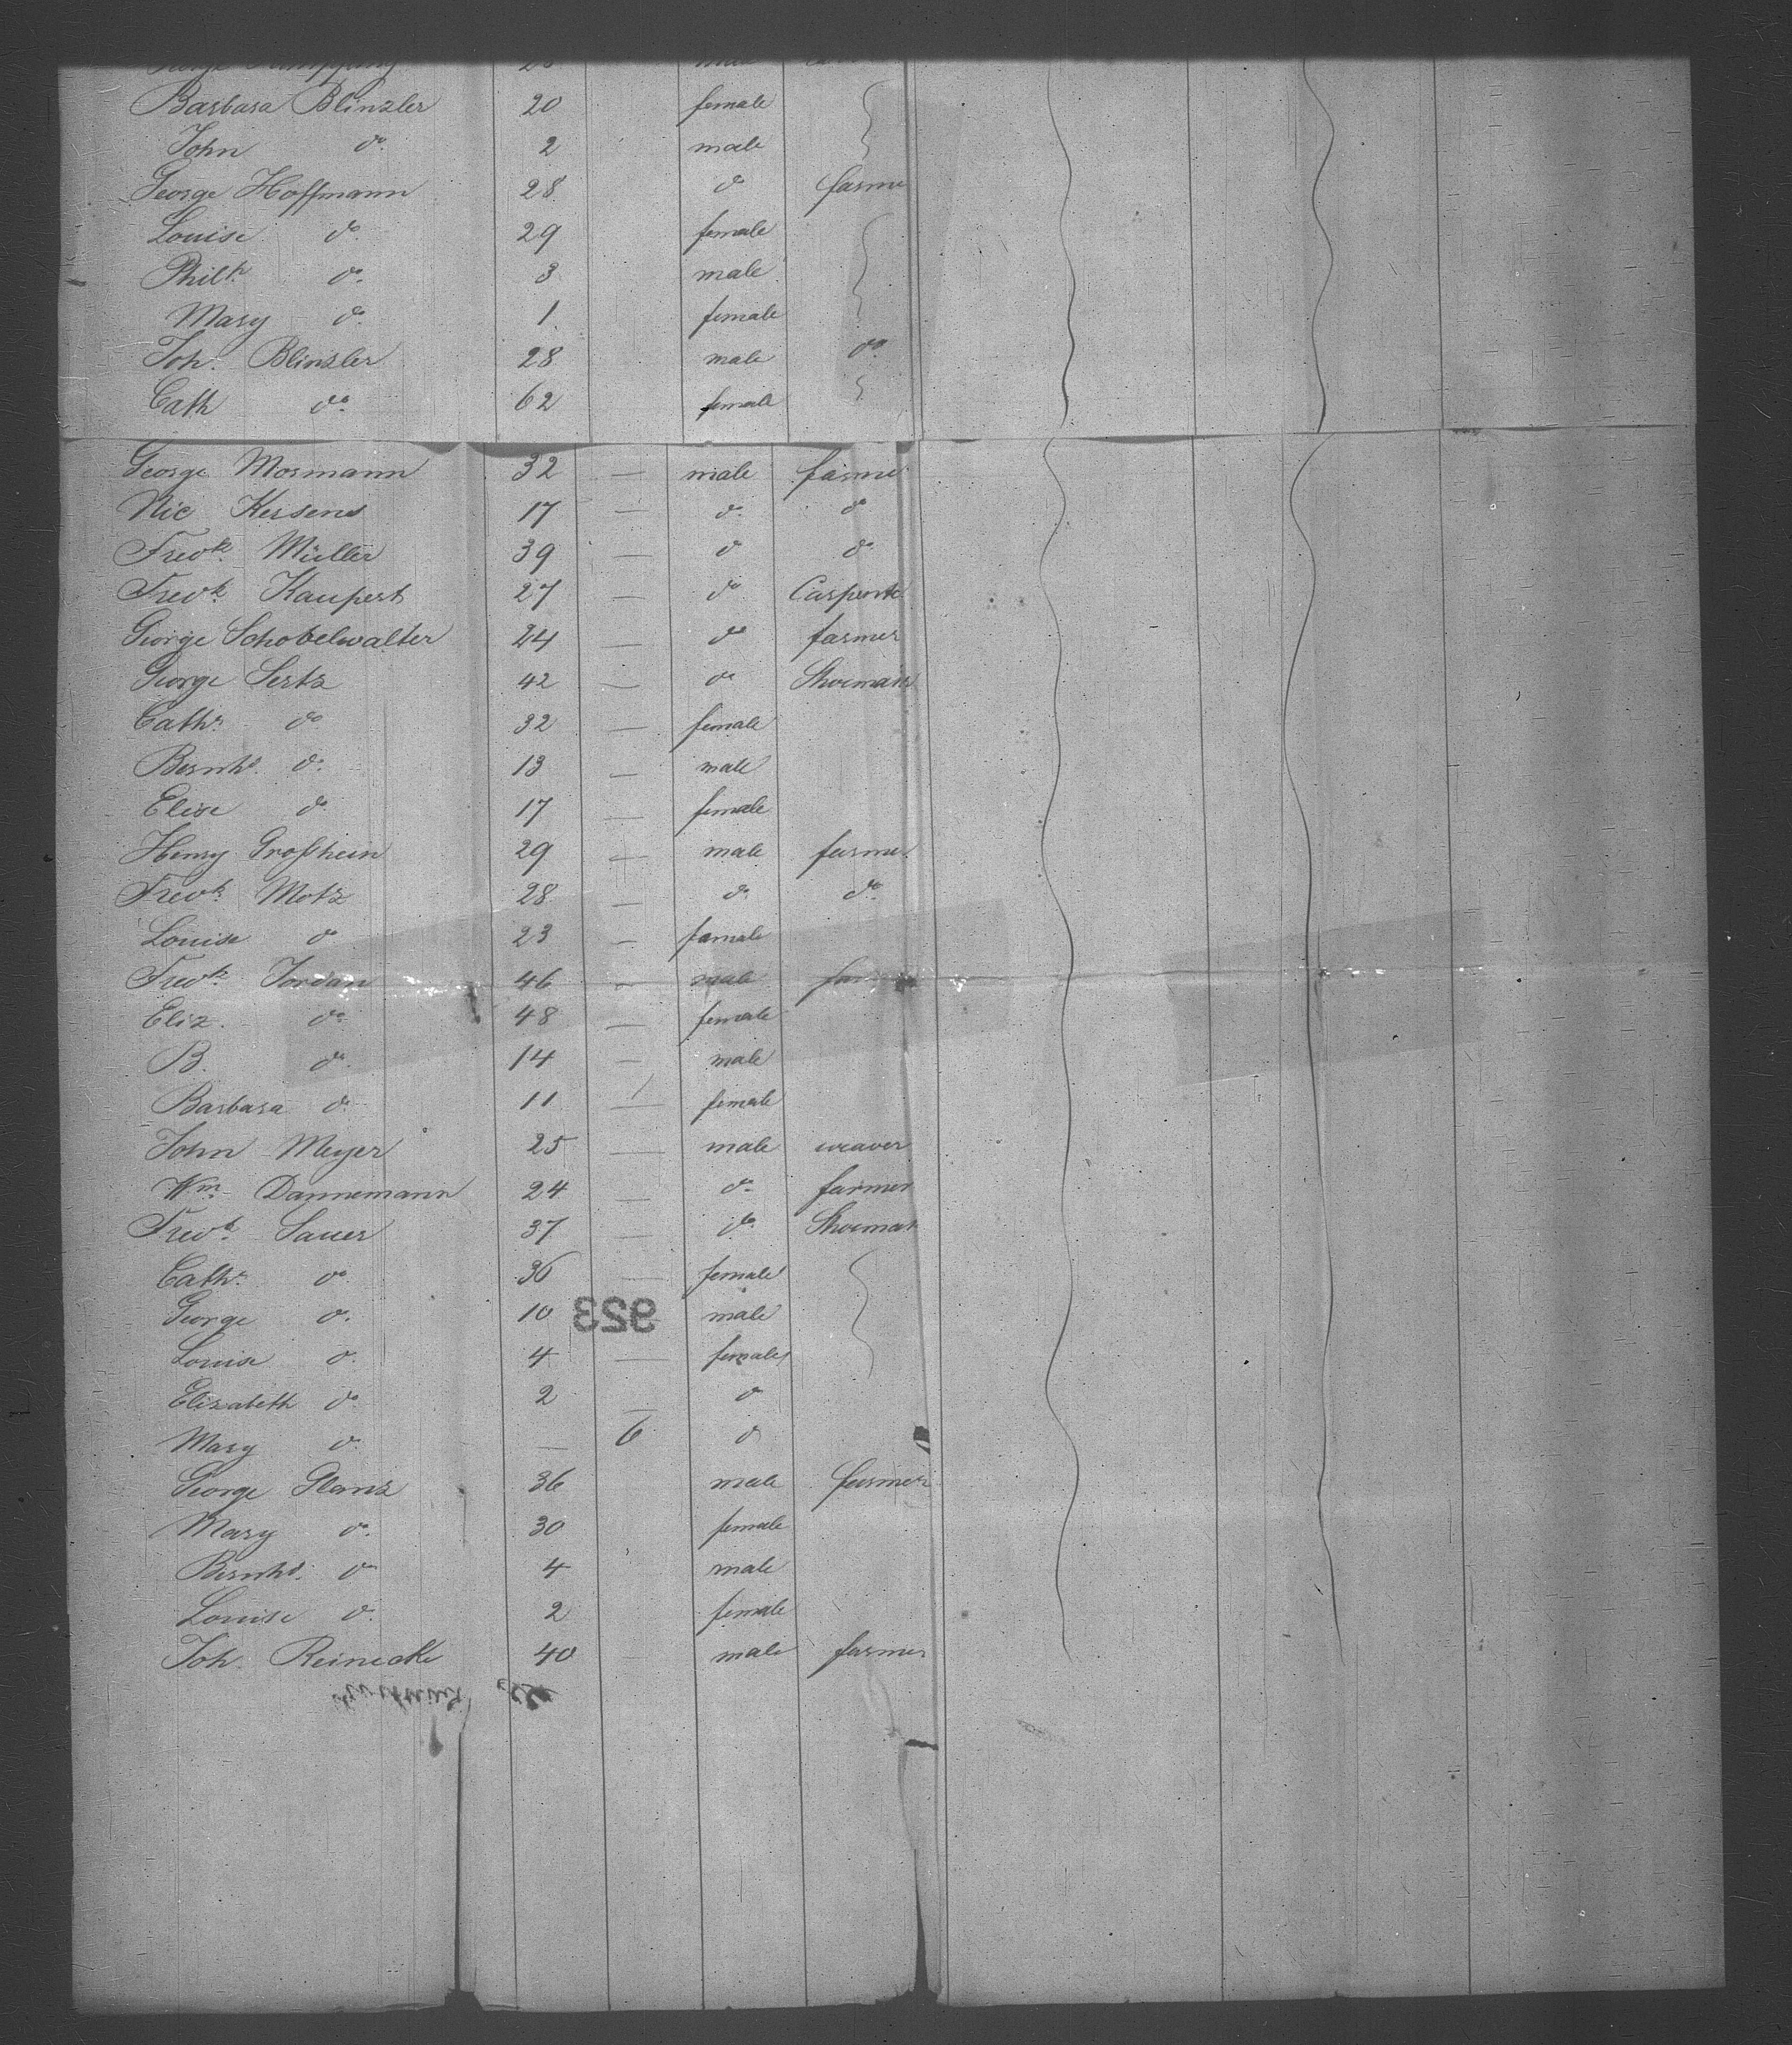 Barbara Blinzler 20 female
John do. 2 male
George Hoffmann 28 do farme
Louise do. 29 female
Philp. do. 3 male
Mary do. 1 female
Joh. Blinzler 28 male do.
Cath do. 62 female
George Mormann 32 — male farme
Nic Kersens 17 — do. do
Fredk. Müller 39 — do do
Fredk. Kaupert 27 — do Carpente
George Schobelwalter 24 — do farmer
George Sertz 42 — do Shoemak
Cathr. do 32 — female
Bernhd. do. 13 — male
Elise do 17 — female
Henry Großhein 29 — male farme
Fredk. Motz 28 — do do.
Louise do 23 — female
Fredk. Jordan 46 — male far
Eliz. do. 48 — female
B. do. 14 — male
Barbara do. 11 — female
John Meyer 25 — male weaver
Wm. Dannemann 24 — do. farmer
Fredk. Sauer 37 — do. Shoemak
Cathr. do. 36 — female
George do. 10 male
923
Louise do. 4 — female
Elizabeth do 2 — do
Mary do. — 6 do
George Glanz 36 male farmer
Mary do. 30 female
Bernhd. do 4 male
Louise do. 2 female
Joh. Reinecke 40 male farmer